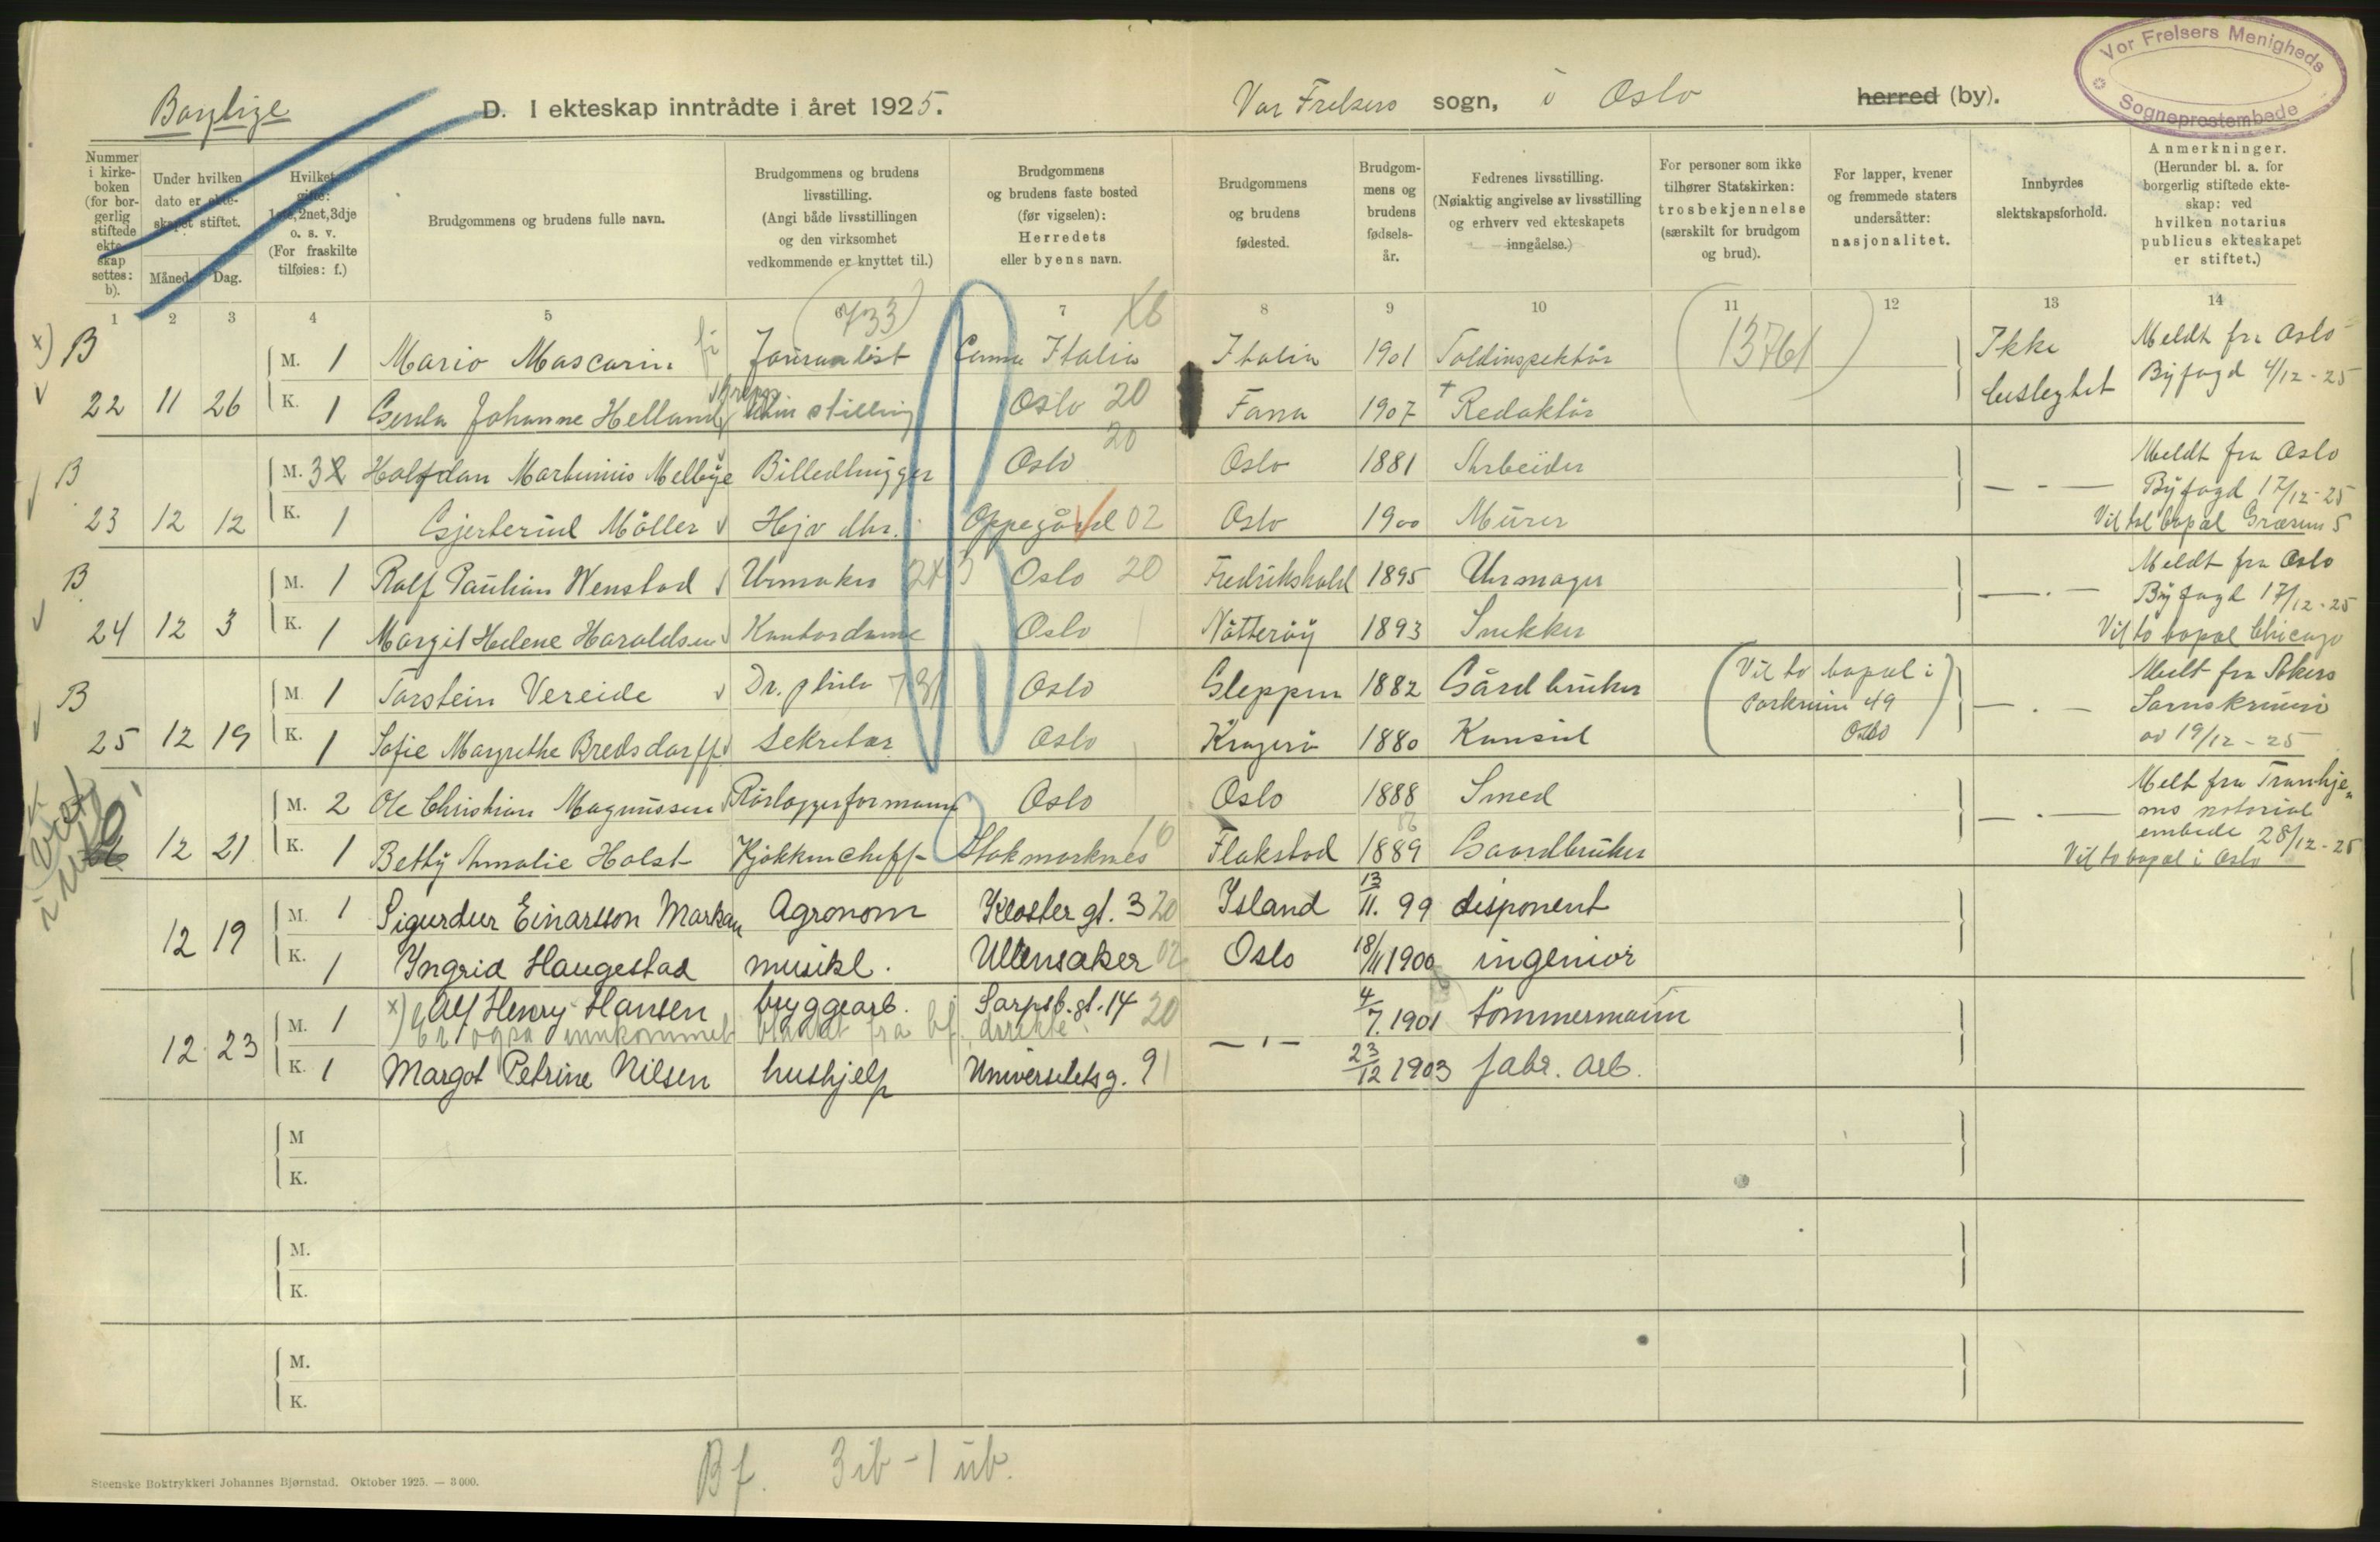 Vor Frelsers Menigheds
Sogneprestembede
Borglige
D. I ekteskap inntrådte i året 1925.
Vor Frelsers sogn, i Oslo herred (by).
Nummer i kirkeboken (for borgerlig stiftede ekteskap settes: b).
Under hvilken dato er ekteskapet stiftet.
Måned. Dag.
Hvilket gifte: 1ste, 2net, 3dje o. s. v. (For fraskilte tilføies: f.)
Brudgommens og brudens fulle navn.
Brudgommens og brudens livsstilling. (Angi både livsstillingen og den virksomhet vedkommende er knyttet til.)
Brudgommens og brudens faste bosted (før vigselen): Herredets eller byens navn.
Brudgommens og brudens fødested.
Brudgommens og brudens fødselsår.
Fedrenes livsstilling. (Nøiaktig angivelse av livsstilling og erhverv ved ekteskapets inngåelse.)
For personer som ikke tilhører Statskirken: trosbekjennelse (særskilt for brudgom og brud).
For lapper, kvener og fremmede staters undersåtter: nasjonalitet.
Innbyrdes slektskapsforhold.
Anmerkninger. (Herunder bl. a. for borgerlig stiftede ekteskap: ved hvilken notarius publicus ekteskapet er stiftet.)
1 2 3 4 5 6 7 8 9 10 11 12 13 14
(733) X8
x) B M. 1 Mario Mascarin Journalist Italia Italia 1901 Toldinspektör (13761) Ikke Meldt fra Oslo
22 11 26 K. 1 Gerda Johanne Helland Uten stilling Oslo 20 Fana 1907 + Redaktör beslegtet Byfogd 4/12-25
B M. 3 Halfdan Martinius Melbye Billedhugger Oslo 20 Oslo 1881 Arbeider Meldt fra Oslo
Byfogd 17/12-25
23 12 12 K. 1 Gjertrud Möller Oppegård 02 Oslo 1900 Murer
B M. 1 Rolf Paulian Wenstad Urmaker Oslo 20 Fredrikshald 1895 Urmager Meldt fra Oslo
Byfogd 17/12-25
24 12 3 K. 1 Margit Helene Haraldsen Kontordame Oslo Nötteröy 1893 Snekker Vil ta bopæl Chicago
B M. 1 Torstein Vereide Dr. philo 731 Oslo Gloppen 1882 Gårdbruker (Vil ta bopæl i Meldt fra Akers
Parkvein 49 Sorenskriveri
25 12 19 K. 1 Sofie Margrethe Bredsdorff Sekretær Oslo Kragerö 1880 Konsul Oslo) av 19/12-25
M. 2 Ole Christian Magnussen Rörlæggerformann Oslo Oslo 1888 Smed
12 21 K. 1 Betty Amalie Holst Kjökkencheff Stokmarknes 18 Flakstad 1889 Gaardbruker embede 28/12-25
Vil ta bopæl i Oslo
M. 1 Sigurdur Einarsson Agronom Kloster gt. 3 20 Island 13/11. 99 disponent
12 19 K. 1 Yngrid Haugestad musikl. Ullensaker 02 Oslo 18/11 1900 ingeniør
M. 1 Alf Henry Hansen bryggearb. Sarpsb. gt. 14 20 4/7. 1901 tömmermann
x) Er også innkommet blankett fra bf.
12 23 K. 1 Margot Petrine Nilsen hushjelp Universitetsg. 9 23/12 1903 fabr. arb.
M
K.
M.
K.
M.
K.
Bf. 3 ib - 1 ub.
Steenske Boktrykkeri Johannes Bjørnstad. Oktober 1925. — 3000.